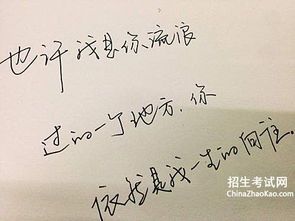 也许我是你流浪
过的一个地方，你
依然是我一生的向往。
招生考试网
ChinaZhaoKao.com